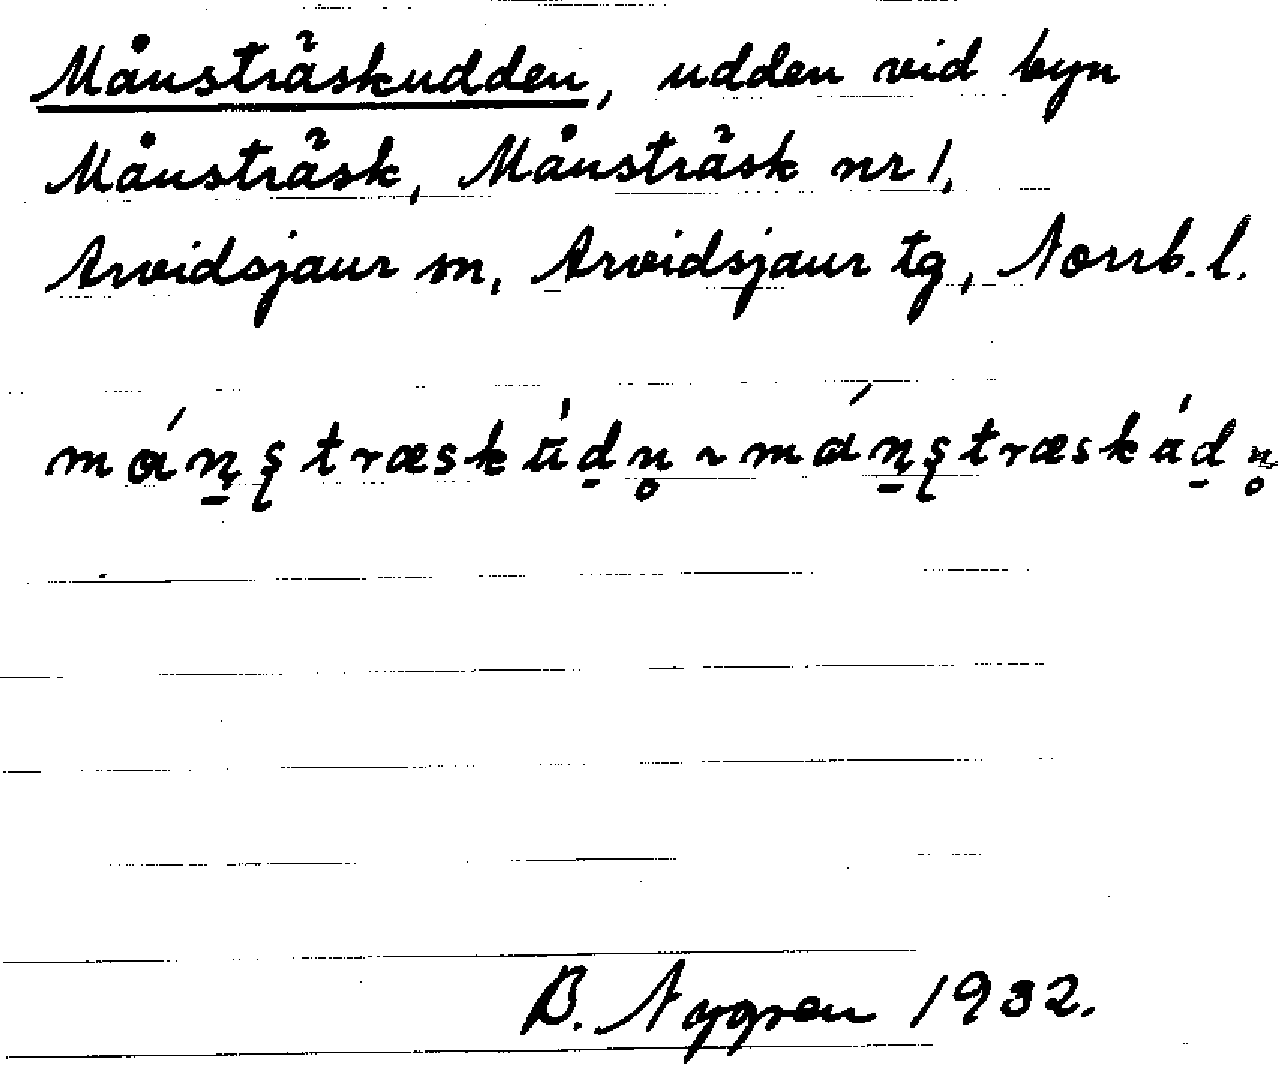 Månsträskudden, udden vid byn
Månsträsk, Månsträsk nr 1,
Arvidsjaur sn, Arvidsjaur tg, Norrb. l.
B. Nygren 1932.